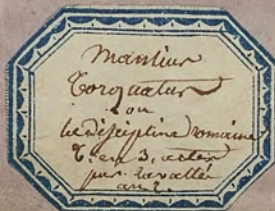 Manlius
Torquatus
ou
la discipline romaine
T. en 3. actes
par Lavallée
an 2.